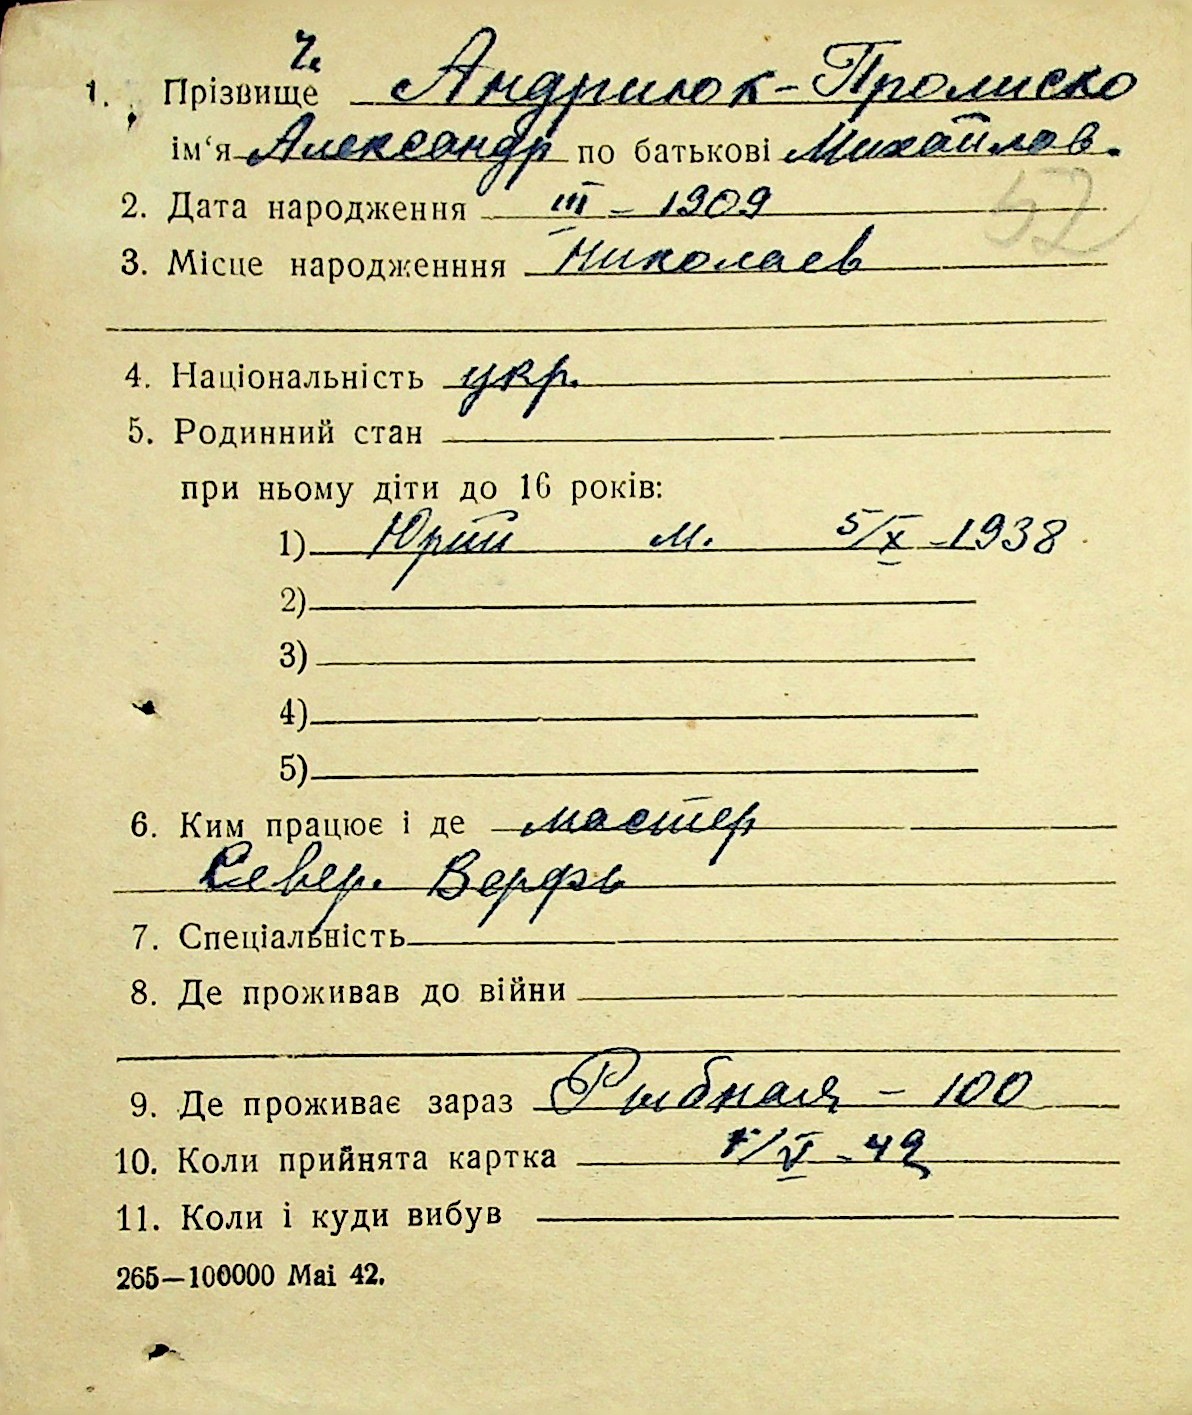 1. Прізвище Андриюк-Промиско
ім‘я Александр по батькові Михайлов.
52
2. Дата народження III – 1909
3. Місце народженння Николаев
4. Національність укр.
5. Родинний стан
при ньому діти до 16 років:
1) Юрий м. 5/X – 1938
2)
3)
4)
5)
6. Ким працює і де мастер
Север. Верфь
7. Спеціальність
8. Де проживав до війни
9. Де проживає зараз Рыбная – 100
10. Коли прийнята картка /V – 42
11. Коли і куди вибув
265—100000 Mai 42.